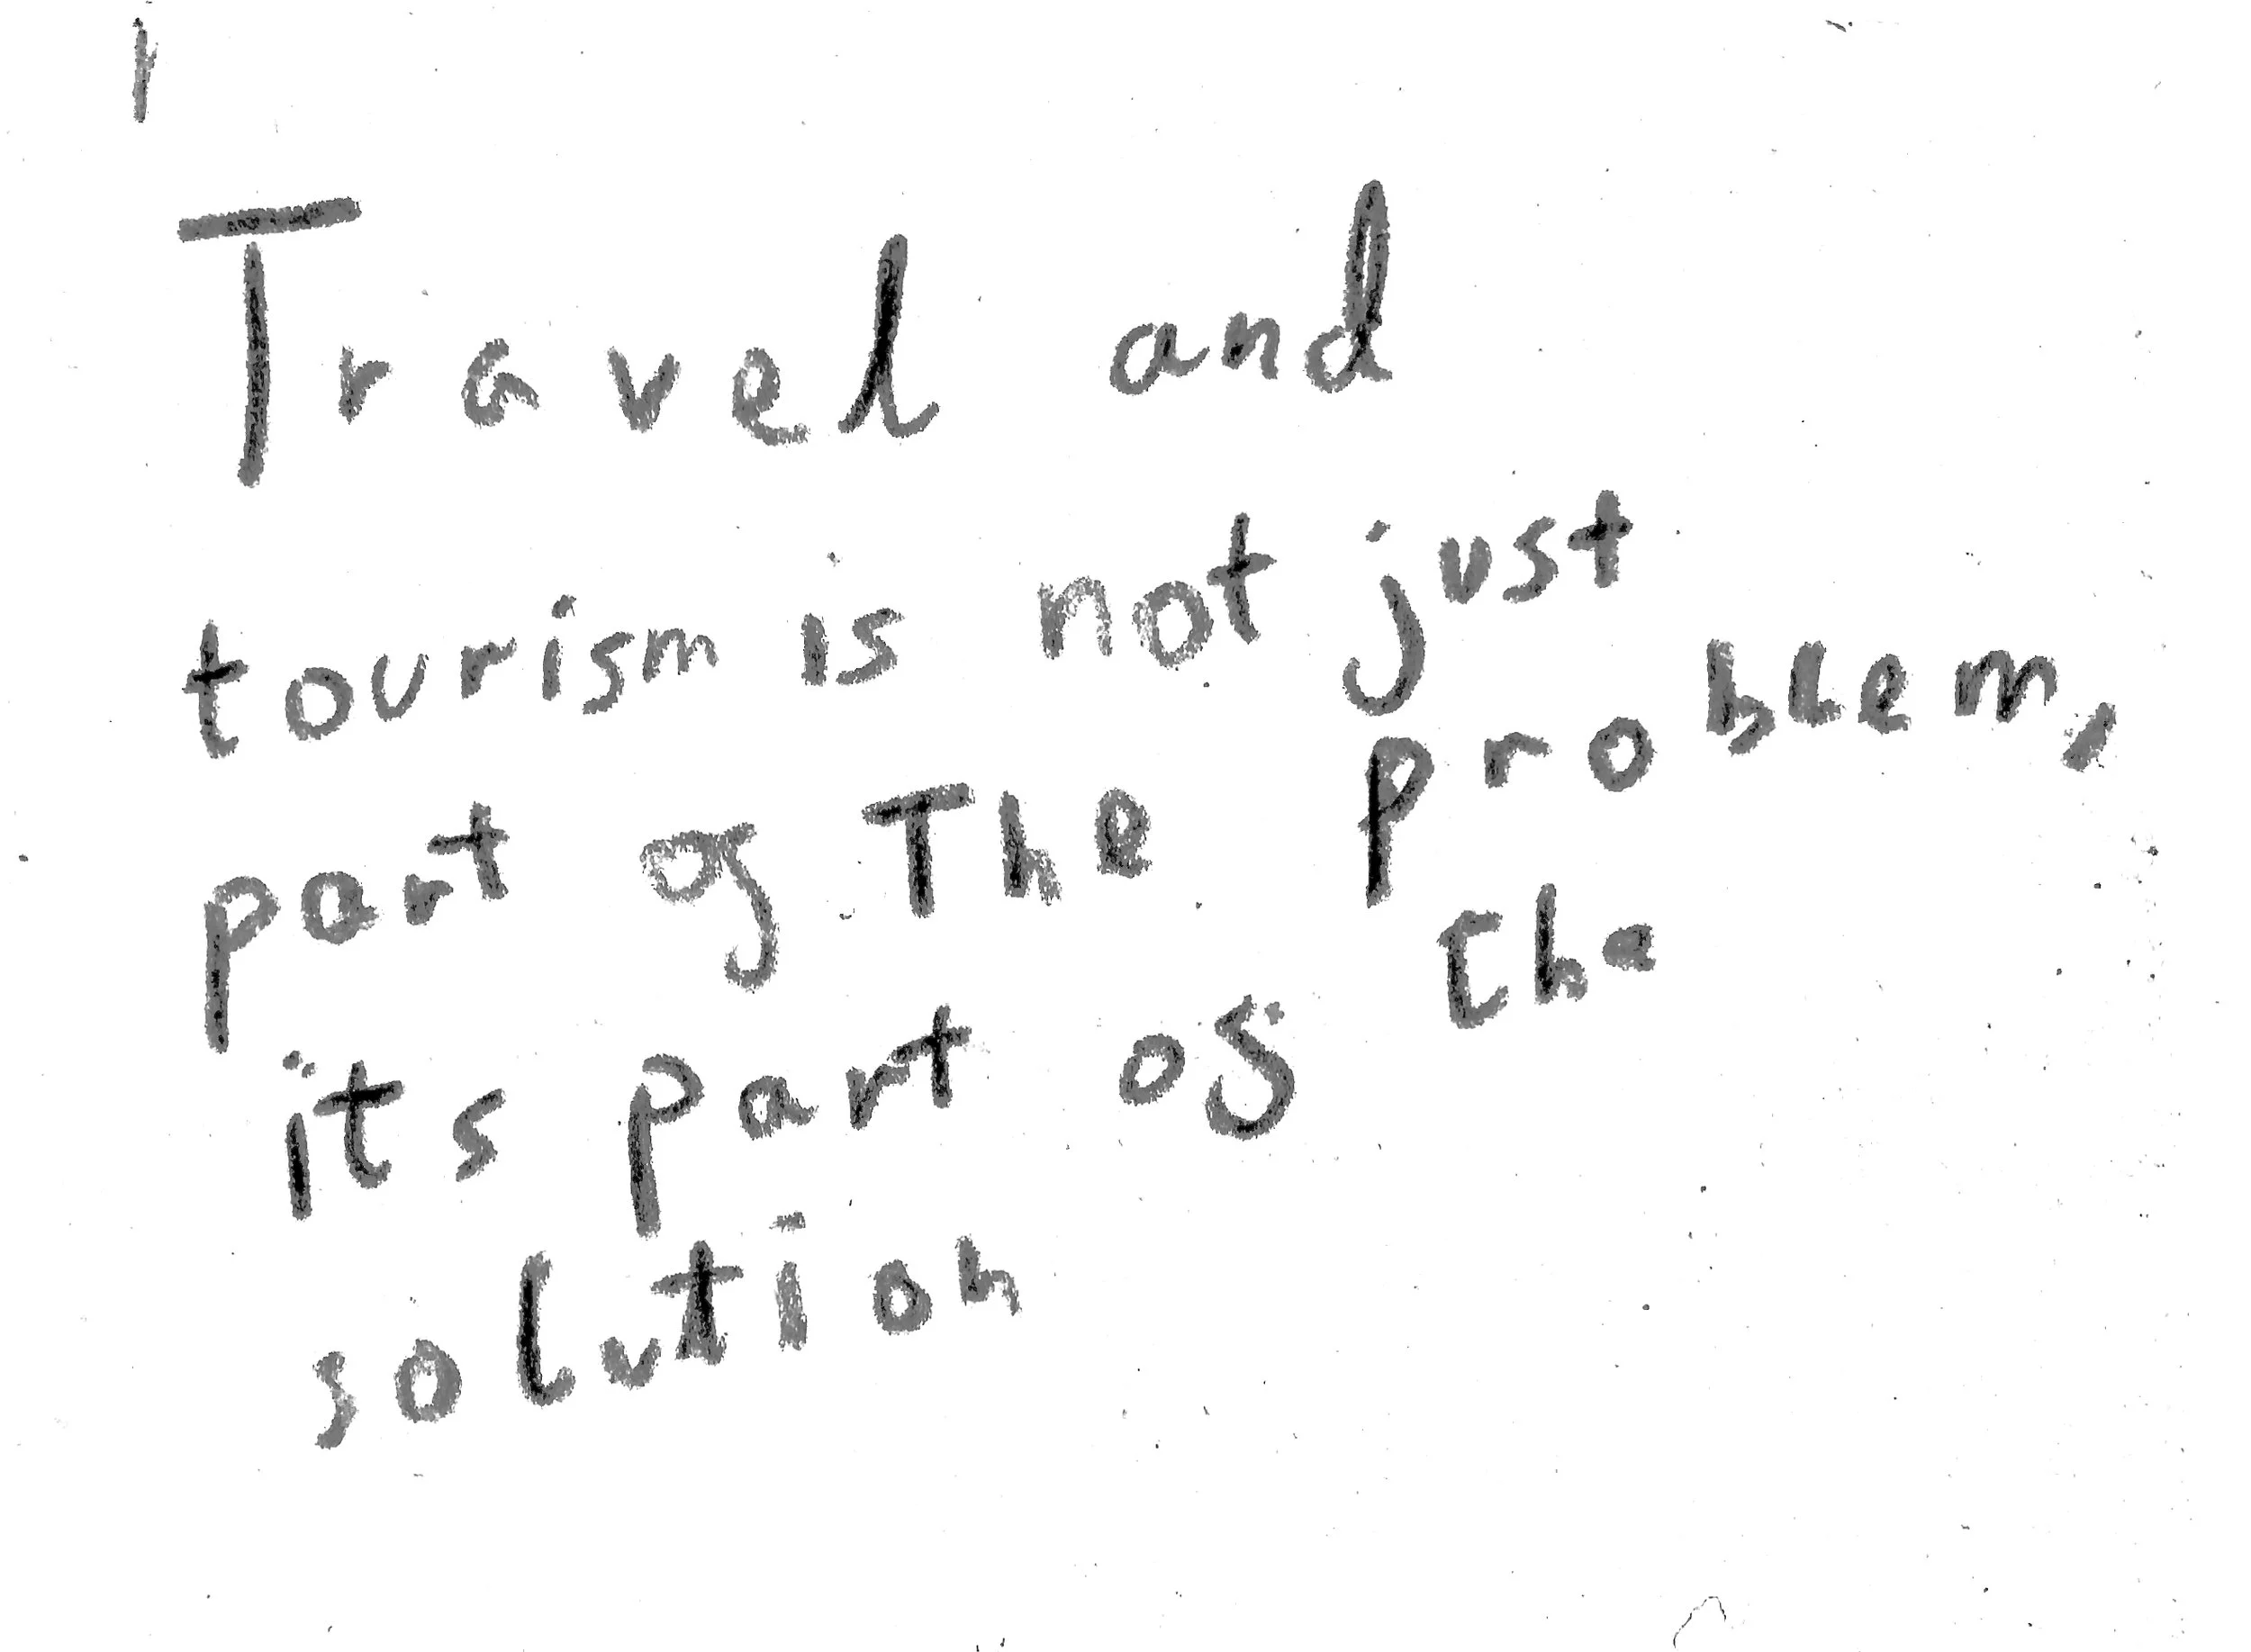 Travel and
tourism is not just
part of The problem,
its part of the
solution